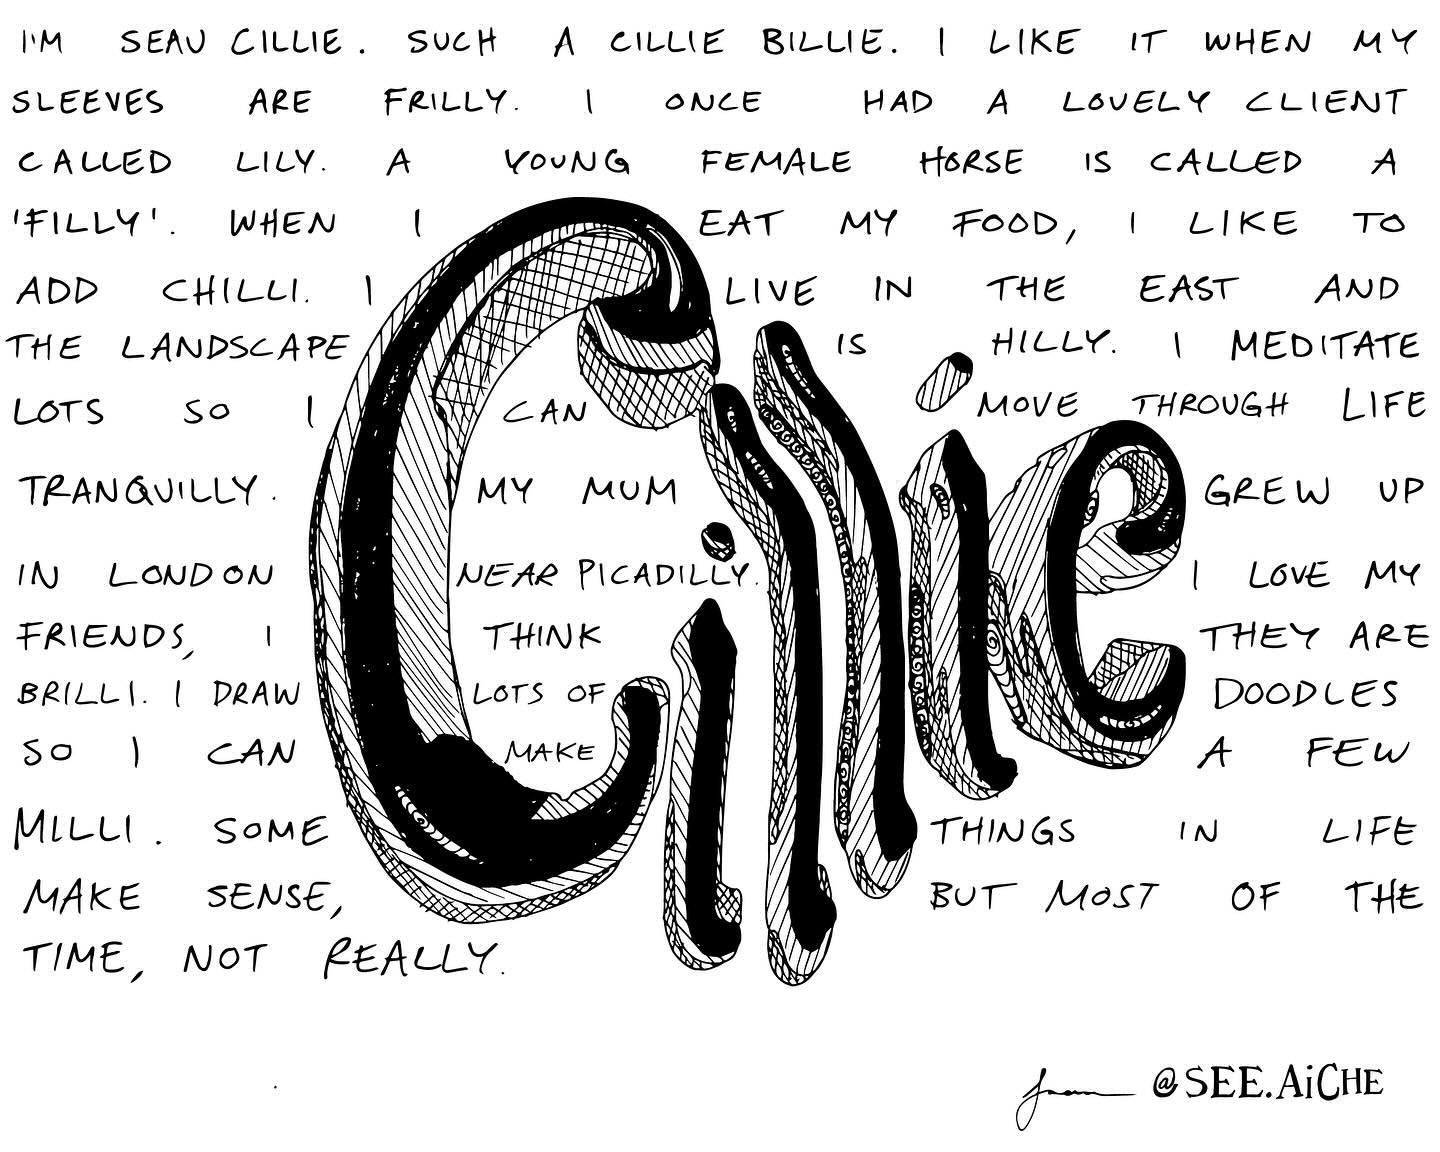 I'M SEAU CILLIE. SUCH A CILLIE BILLIE. I LIKE IT WHEN MY
SLEEVES ARE FRILLY. I ONCE HAD A LOVELY CLIENT
CALLED LILY. A YOUNG FEMALE HORSE IS CALLED A
'FILLY'. WHEN I EAT MY FOOD, I LIKE TO
ADD CHILLI. I LIVE IN THE EAST AND
THE LANDSCAPE IS HILLY. I MEDITATE
LOTS SO I CAN MOVE THROUGH LIFE
TRANQUILLY. MY MUM GREW UP
IN LONDON NEAR PICADILLY. I LOVE MY
FRIENDS, I THINK THEY ARE
BRILLI. I DRAW LOTS OF DOODLES
SO I CAN MAKE A FEW
MILLI. SOME THINGS IN LIFE
MAKE SENSE, BUT MOST OF THE
TIME, NOT REALLY.
Cillie
@SEE.AiCHE